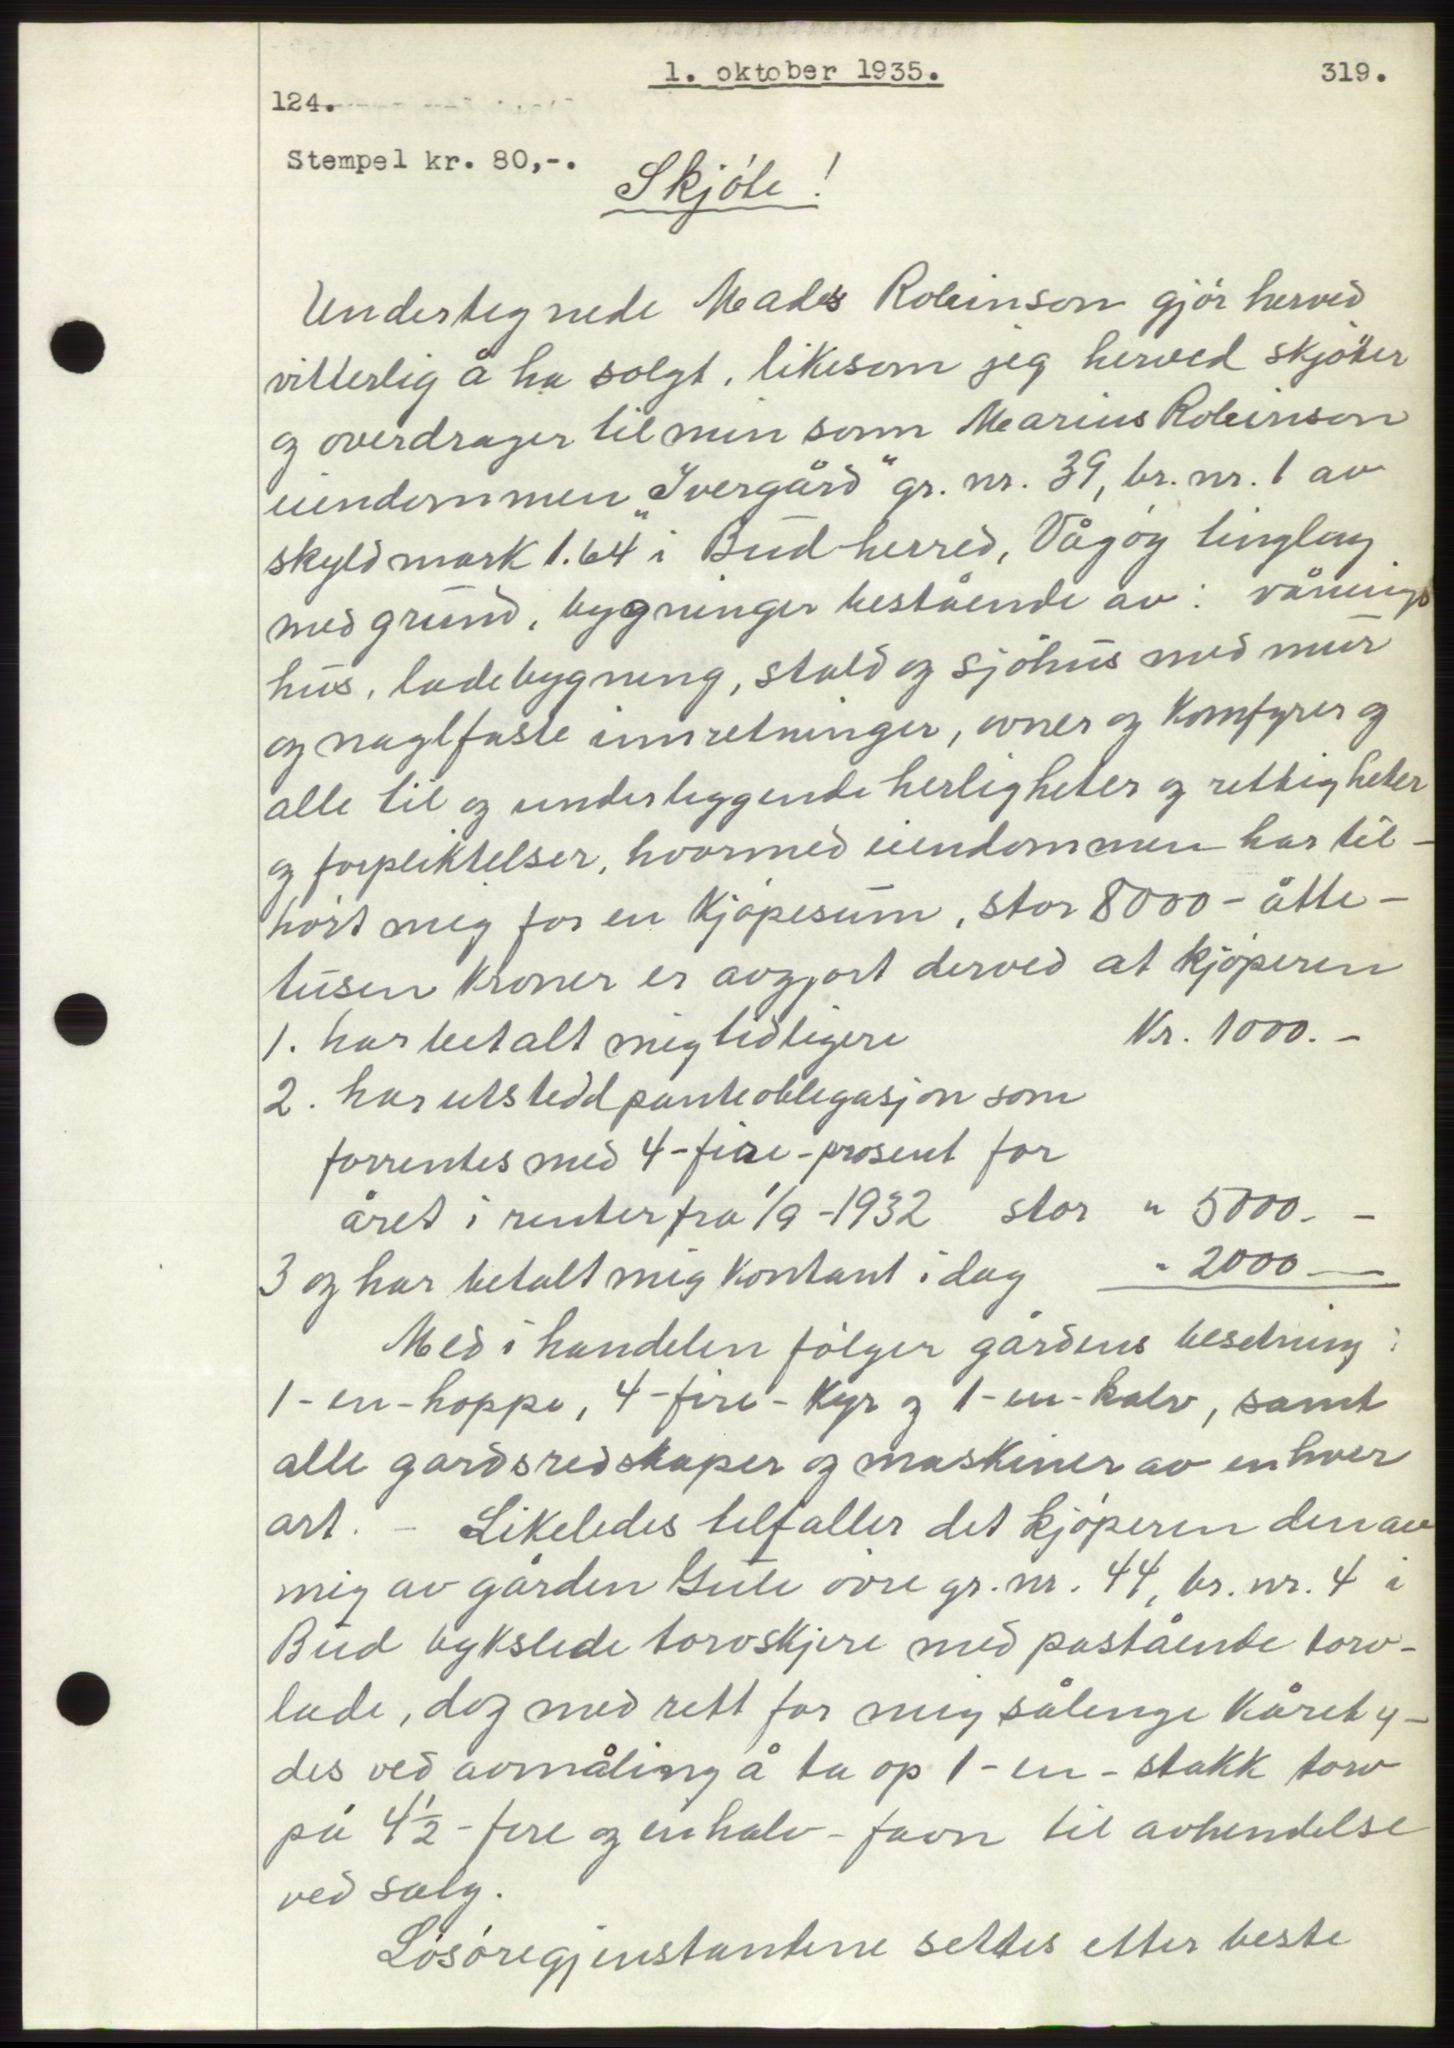 1. oktober 1935.
319.
124.
Stempel kr. 80,-.
Skjöte!
Undertegnede Mads Robinson gjör herved
vitterlig å ha solgt, likesom jeg herved skjöter
og overdrager til min sönn Marius Robinson
eiendommen "Ivergård" gr. nr. 39, br. nr. 1 av
skyld mark 1.64 i Bud herred, Vågöy tinglag
med grund, bygninger bestående av: vånings
hus, ladebygning, stald og sjöhus med mur
og naglfaste innretninger, ovner og komfyrer og
alle til og underliggende herligheter og rettigheter
og forpliktelser, hvormed eiendommen har til-
hört mig for en kjöpesum, stor 8000 - åtte -
tusen kroner er avgjort derved at kjöperen
1. har betalt mig tidligere Kr. 1000.-
2. har utstedd panteobligasjon som
forrentes med 4 - fire - prosent for
året i renter fra 1/9 - 1932 stor " 5000.-
3 og har betalt mig kontant i dag " 2000 —
Med i handelen fölger gårdens besetning:
1 - en - hoppe, 4 - fire - kyr og 1 - en - kalv, samt
alle gardsredskaper og maskiner av enhver
art. - Likeledes tilfaller det kjöperen den av
mig av gården Gule övre gr. nr. 44, br. nr. 4 i
Bud bykslede torvskjere med påstående torv-
lade, dog med rett for mig sålenge kåret y-
des ved avmåling å ta op 1 - en - stakk torv
på 4 1/2 - fire og en halv - favn til avhendelse
ved salg.
Lösöregjenstandene settes etter beste